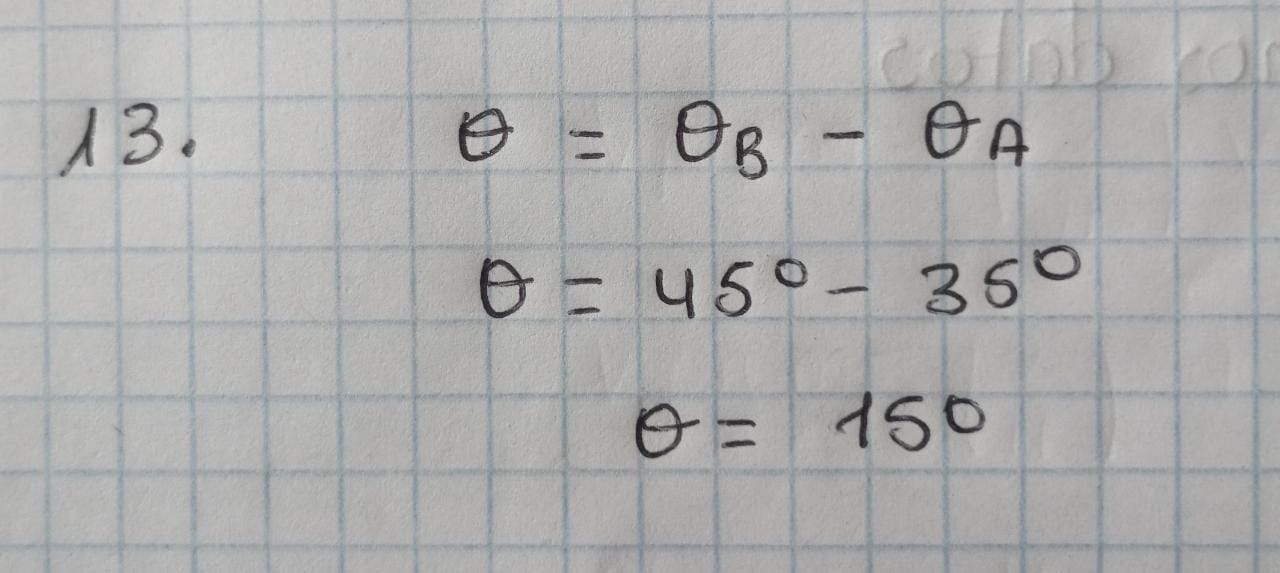 13. θ = θB - θA
θ = 45° - 35°
θ = 15°